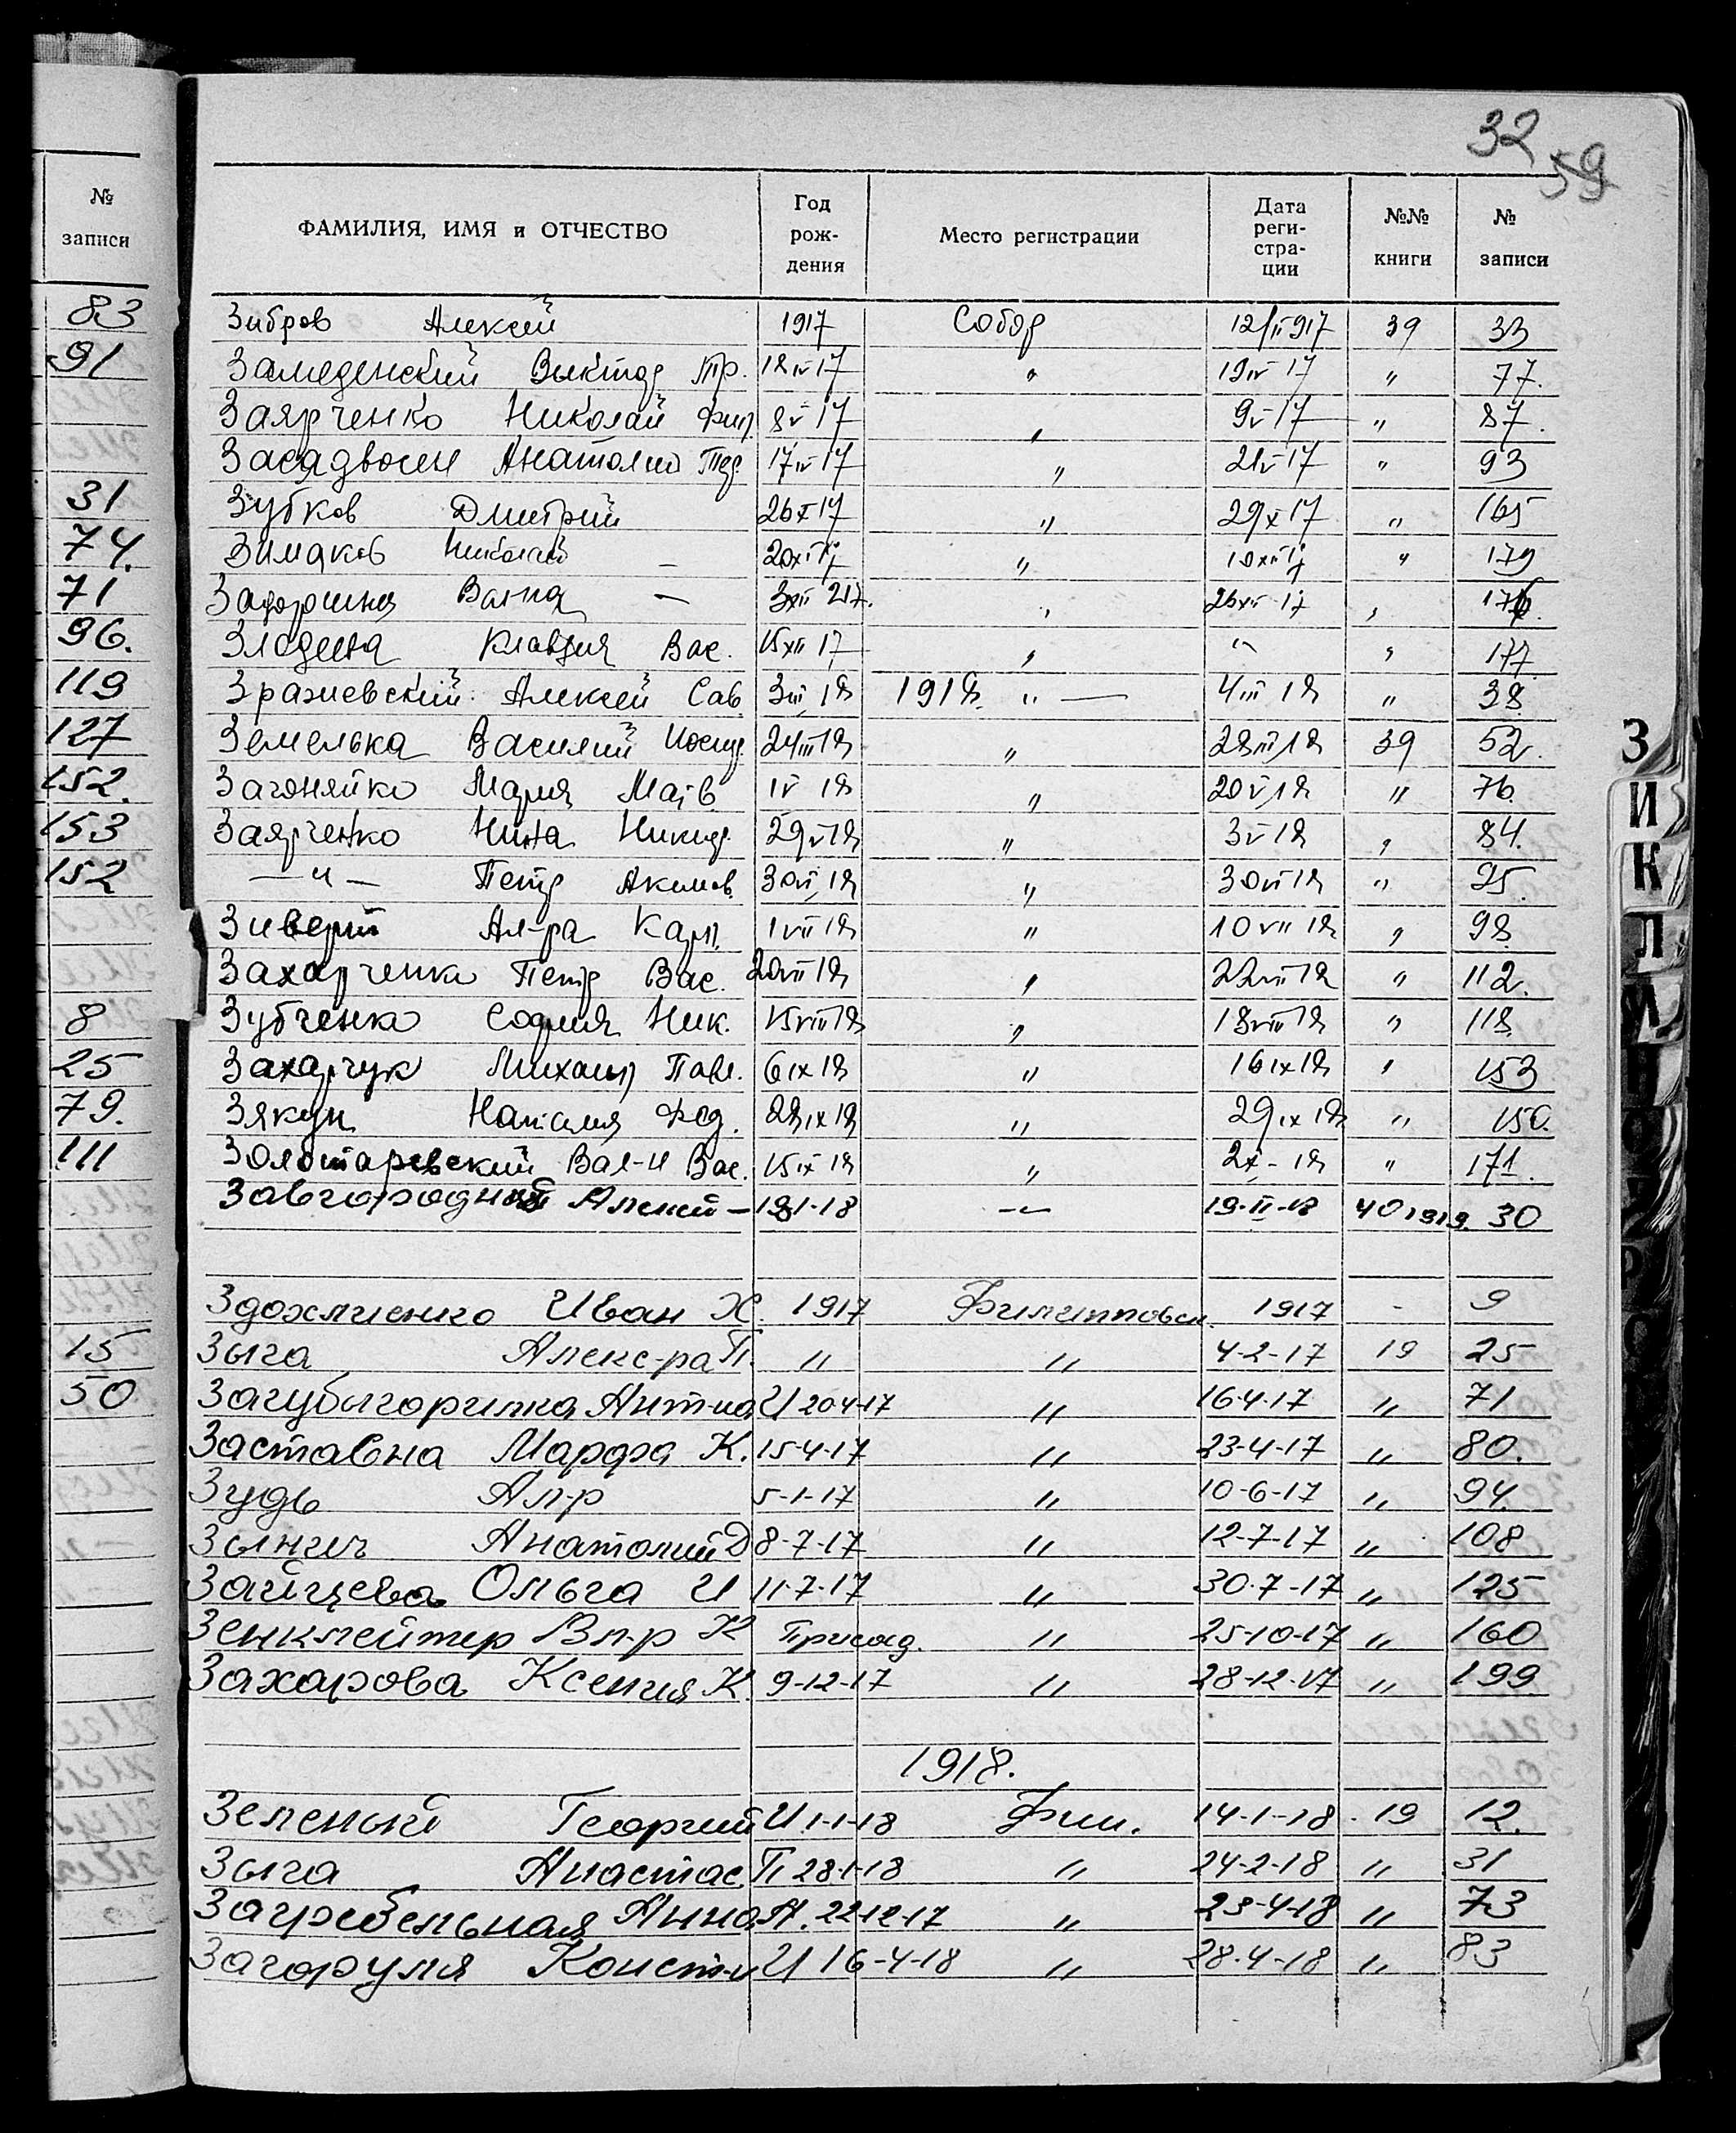 32
59
№ записи
83
91
31
74.
71
96.
119
127
152.
153
152
8
25
79.
111
15
50
ФАМИЛИЯ, ИМЯ и ОТЧЕСТВО Год рож- дения Место регистрации Дата реги- стра- ции №№ книги № записи
Зибров Алексей 1917 Собор 12/II 917 39 33
Виктор 18 IV 17 " 19 IV 17 " 77.
Заярченко Николай Фил. 8 V 17 " 9 V 17 " 87.
Анатолий 17 IV 17 " 21 V 17 " 93
Зубков Дмитрий 26 X 17 " 29 X 17 " 165
Зимаков Николай – " " 179
– " 26 XII 17 "
Клавдия Вас. 15 XII 17 " " " 177
Зражевский Алексей Сав. 3 III 18 1918. " — 4 III 18 " 38.
Земелька Василий Иосиф. 24 III 18 " 28 III 18 39 52.
Загоняйко Мария Матв. 1 V 18 " 20 V 18 " 76.
Заярченко Нина Никиф. 29 V 18 " 3 V 18 " 84.
— " — Петр Акимов. 30 VI 18 " 30 VI 18 " 95.
Зиверт Ал-ра Карл. 1 VII 18 " 10 VII 18 " 98
Захарченко Петр Вас. 20 VII 18 " 22 VII 18 " 112.
Зубченко София Ник. 15 VIII 18 " 18 VIII 18 " 118
Захарчук Михаил Павл. 6 IX 18 " 16 IX 18 " 153
Зякун Наталия Фед. 28 IX 18 " 29 IX 18 " 150.
Золотаревский Вал-н Вас. 15 IX 18 " 2 X - 18 " 171.
Завгородний Алексей – -1-18 –"– 19-II-18 40 1919. 30
Здохлиенко Иван Х. 1917 Филипповск. 1917 - 9
Зыга Алекс-ра П. " " 4-2-17 19 25
Загубыгорилка Ант-на И 20-4-17 " 16-4-17 " 71
Заставна Марфа К. 15-4-17 " 23-4-17 " 80.
Зудь Ал-р 5-1-17 " 10-6-17 " 94
Зынич Анатолий Д 8-7-17 " 12-7-17 " 108
Зайцева Ольга И 11-7-17 " 30-7-17 " 125
Зенклейтер Вл-р К Присад. " 25-10-17 " 160
Захарова Ксения К. 9-12-17 " 28-12-17 " 199
1918.
Зеленый Георгий И 1-1-18 Фил. 14-1-18 19 12.
Зыга Анастас. П 28-1-18 " 24-2-18 " 31
Загребельная Анна А. 22-12-17 " 23-4-18 " 73
Загоруля Конст-н И 16-4-18 " 28-4-18 " 83
З
И
К
Л
М
Н
О
Р